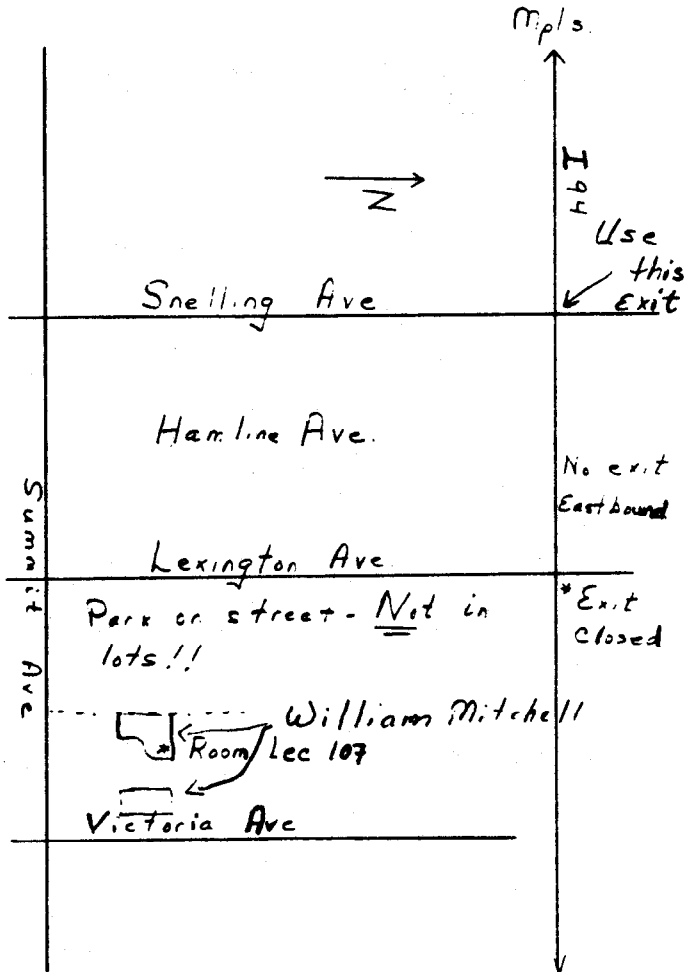 Mpls.
I 94
N
Use
this
Exit
Snelling Ave
Hamline Ave.
No exit
Eastbound
Summit Ave
Lexington Ave
*Exit
Closed
Park on street - Not in
lots!!
William Mitchell
* Room Lec 107
Victoria Ave